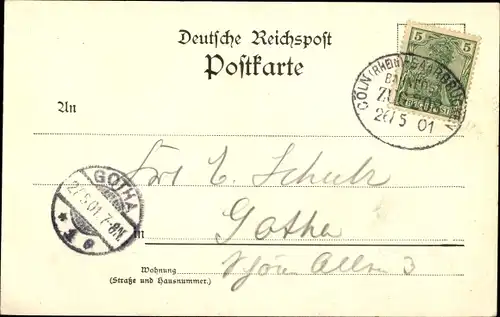 Deutsche Reichspost
Postkarte
5 5
CÖLN (RHEIN) SAARBRÜCKEN
BAHNPOST
ZUG
26/5 01
An
GOTHA
27.5.01. 7-8N.
* 1 e
E. Schulz
in Gotha
Wohnung
Schöne Allee 3
(Straße und Hausnummer.)